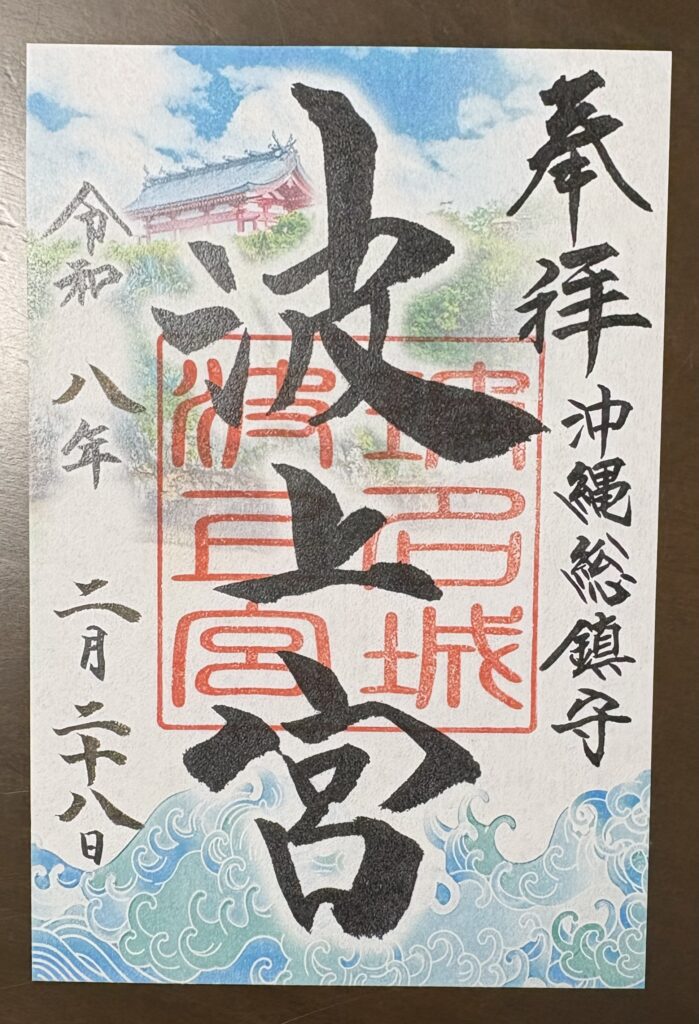 奉拝
沖縄総鎮守
波上宮
瑞名城
波上宮
令和八年二月二十八日